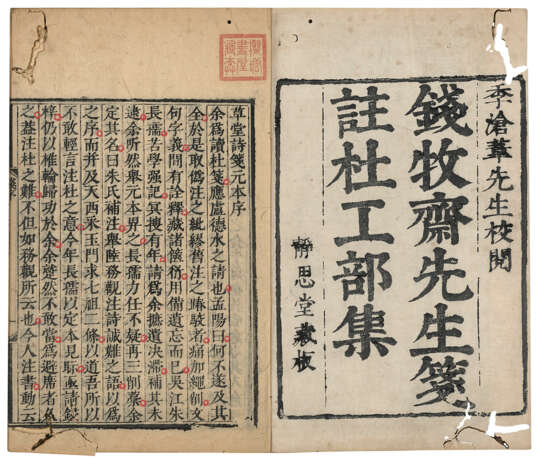 季滄葦先生校閱
錢牧齋先生箋
註杜工部集
靜思堂藏板
草堂詩箋元本序
余爲讀杜箋應盧德水之請也孟陽曰何不遂及其
全於是取僞注之紕繆舊注之踳駮者痛加繩削文
句字義間有詮釋藏諸篋衍用備遺忘而已吳江朱
長孺苦學强記冥搜有年請爲余摭遺决滯補其未
逮余听然舉元本畀之長孺力任不疑再三削藁余
定其名曰朱氏補注舉陸務觀注詩誠難之語以爲
之序而并及天西采玉門求七祖二條以道吾所以
不敢輕言注杜之意今年長孺以定本見眎亟請鋟
梓仍以椎輪歸功於余余蹙然不敢當爲避席者久
之蓋注杜之難不但如務觀所云也今人注書動云